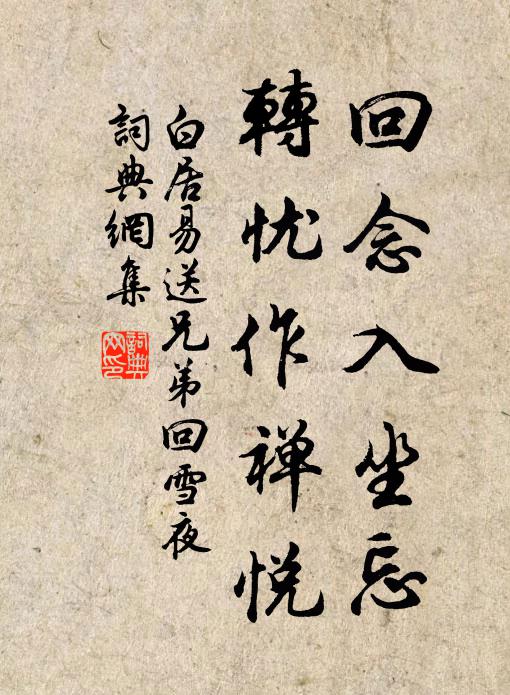 回念入坐忘
轉忧作禅悦
白居易送兄弟回雪夜
詞典網集
詞典網印